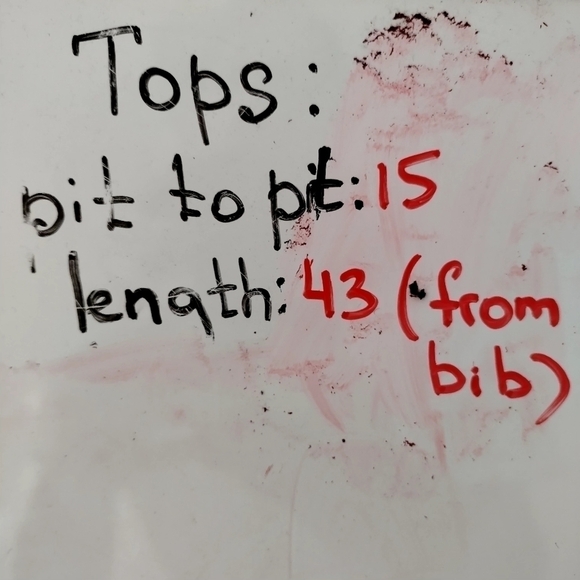 Tops:
pit to pit: 15
length: 43 (from
bib)